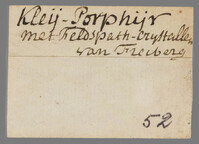 Kleÿ-Porphijr
met Feldspath-Crystallen
van Freiberg
52